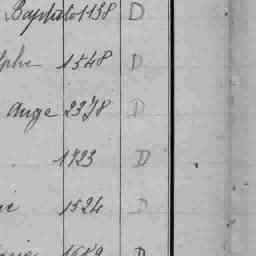 Baptiste 1138 D
lphe 1548 D
Ange 2378 D
1723 D
ie 1524 D
1659 D